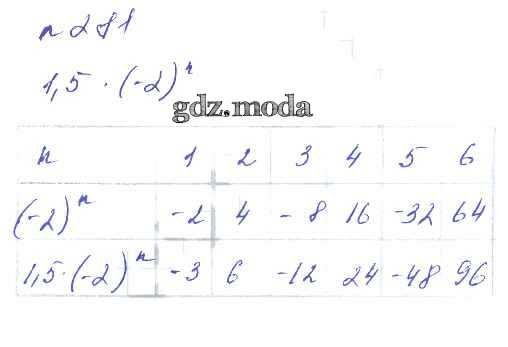 n 281
1,5 · (-2)ⁿ
gdz.moda
n 1 2 3 4 5 6
(-2)ⁿ -2 4 -8 16 -32 64
1,5·(-2)ⁿ -3 6 -12 24 -48 96